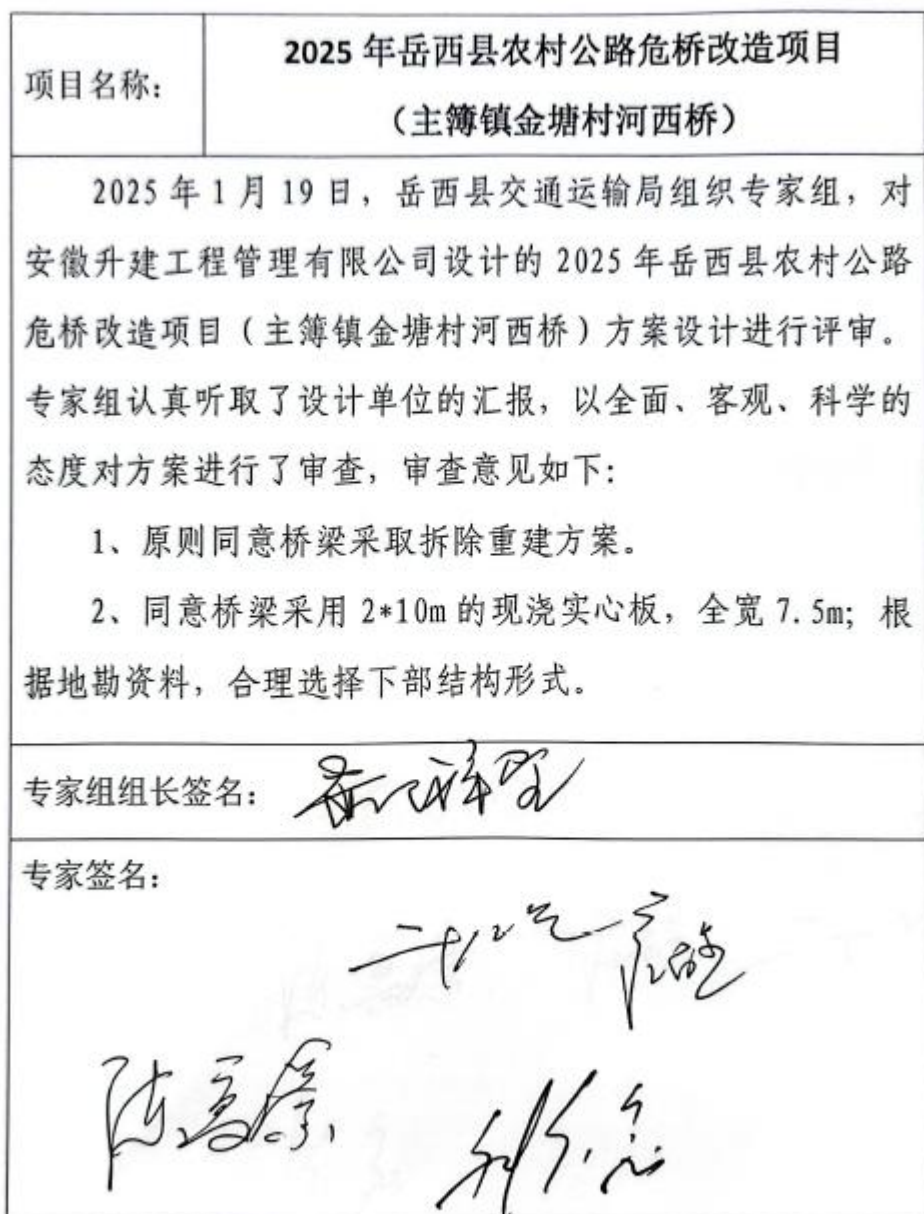 项目名称:
2025 年岳西县农村公路危桥改造项目
(主簿镇金塘村河西桥)
2025 年 1 月 19 日，岳西县交通运输局组织专家组，对
安徽升建工程管理有限公司设计的 2025 年岳西县农村公路
危桥改造项目（主簿镇金塘村河西桥）方案设计进行评审。
专家组认真听取了设计单位的汇报，以全面、客观、科学的
态度对方案进行了审查，审查意见如下：
1、原则同意桥梁采取拆除重建方案。
2、同意桥梁采用 2*10m 的现浇实心板，全宽 7.5m；根
据地勘资料，合理选择下部结构形式。
专家组组长签名：
专家签名：